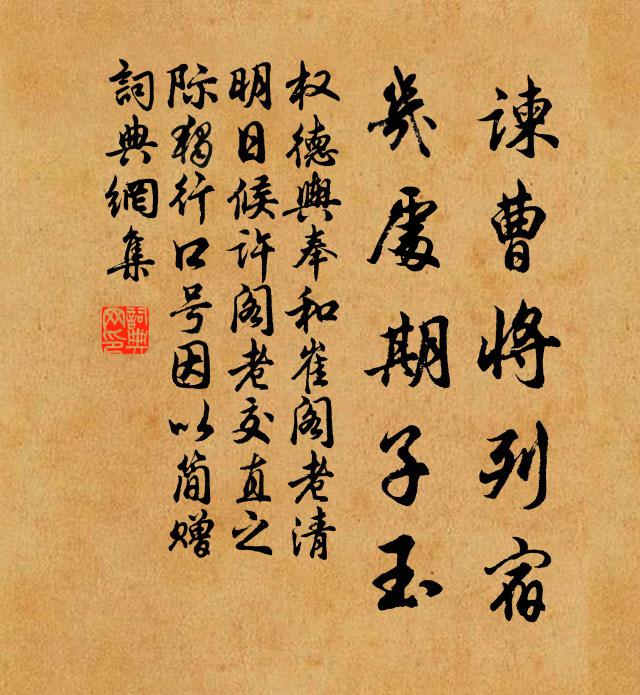 谏曹将列宿
几处期子玉
权德舆奉和崔阁老清
明日候许阁老交直之
际独行口号因以简赠
词典网集
词典网印